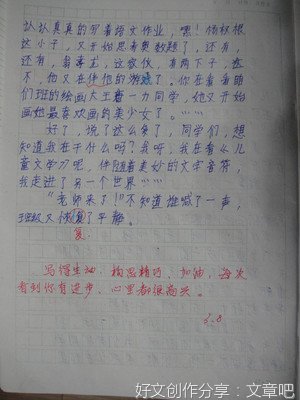 认认真真的写着语文作业，嘿！杨权根
这小子，又开始思考奥数题了，还有，
还有，看这，这家伙，有两下子，这
不，他又在伴他的游戏了。你在看看咱
们班的绘画大王曹一力同学，她又开始
画她最喜欢画的美少女了。……
好了，说了这么多了，同学们，想
知道我在干什么吗？我呐，我在看儿
童文学刀呢，伴随着美妙的文字音符，
我走进了另一个世界……
“老师来了！”不知道谁喊了一声，
班级又恢复了平静。
复：
写得生动，构思精巧，加油，每次
看到你有进步，心里都很高兴。
3.8
好文创作分享：文章吧